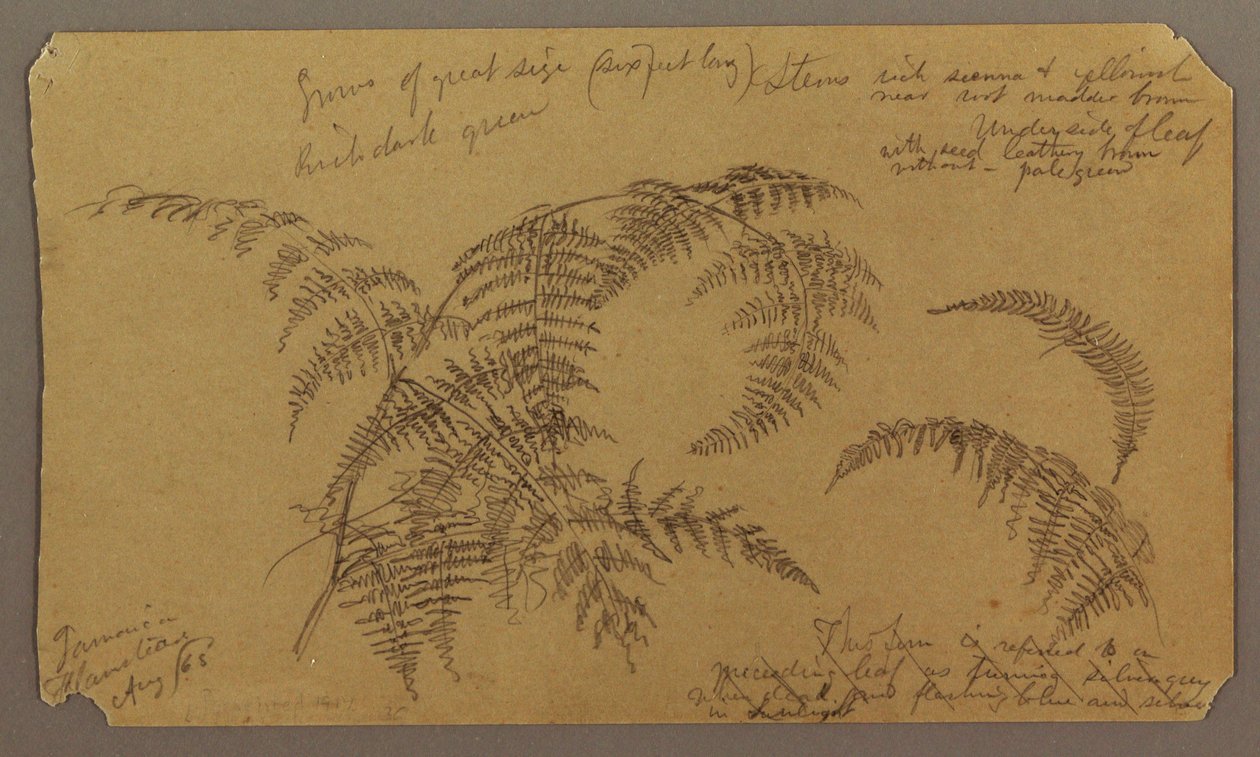 Grows of great size (six feet long)
Rich dark green
Stems rich sienna & yellowish
near root madder brown
Underside of leaf
with seed leathery brown
without - pale green
Jamaica
Aug / 65
This fern is referred to on
preceeding leaf as turning silver grey
when dead and flashing blue and silver
in sunlight